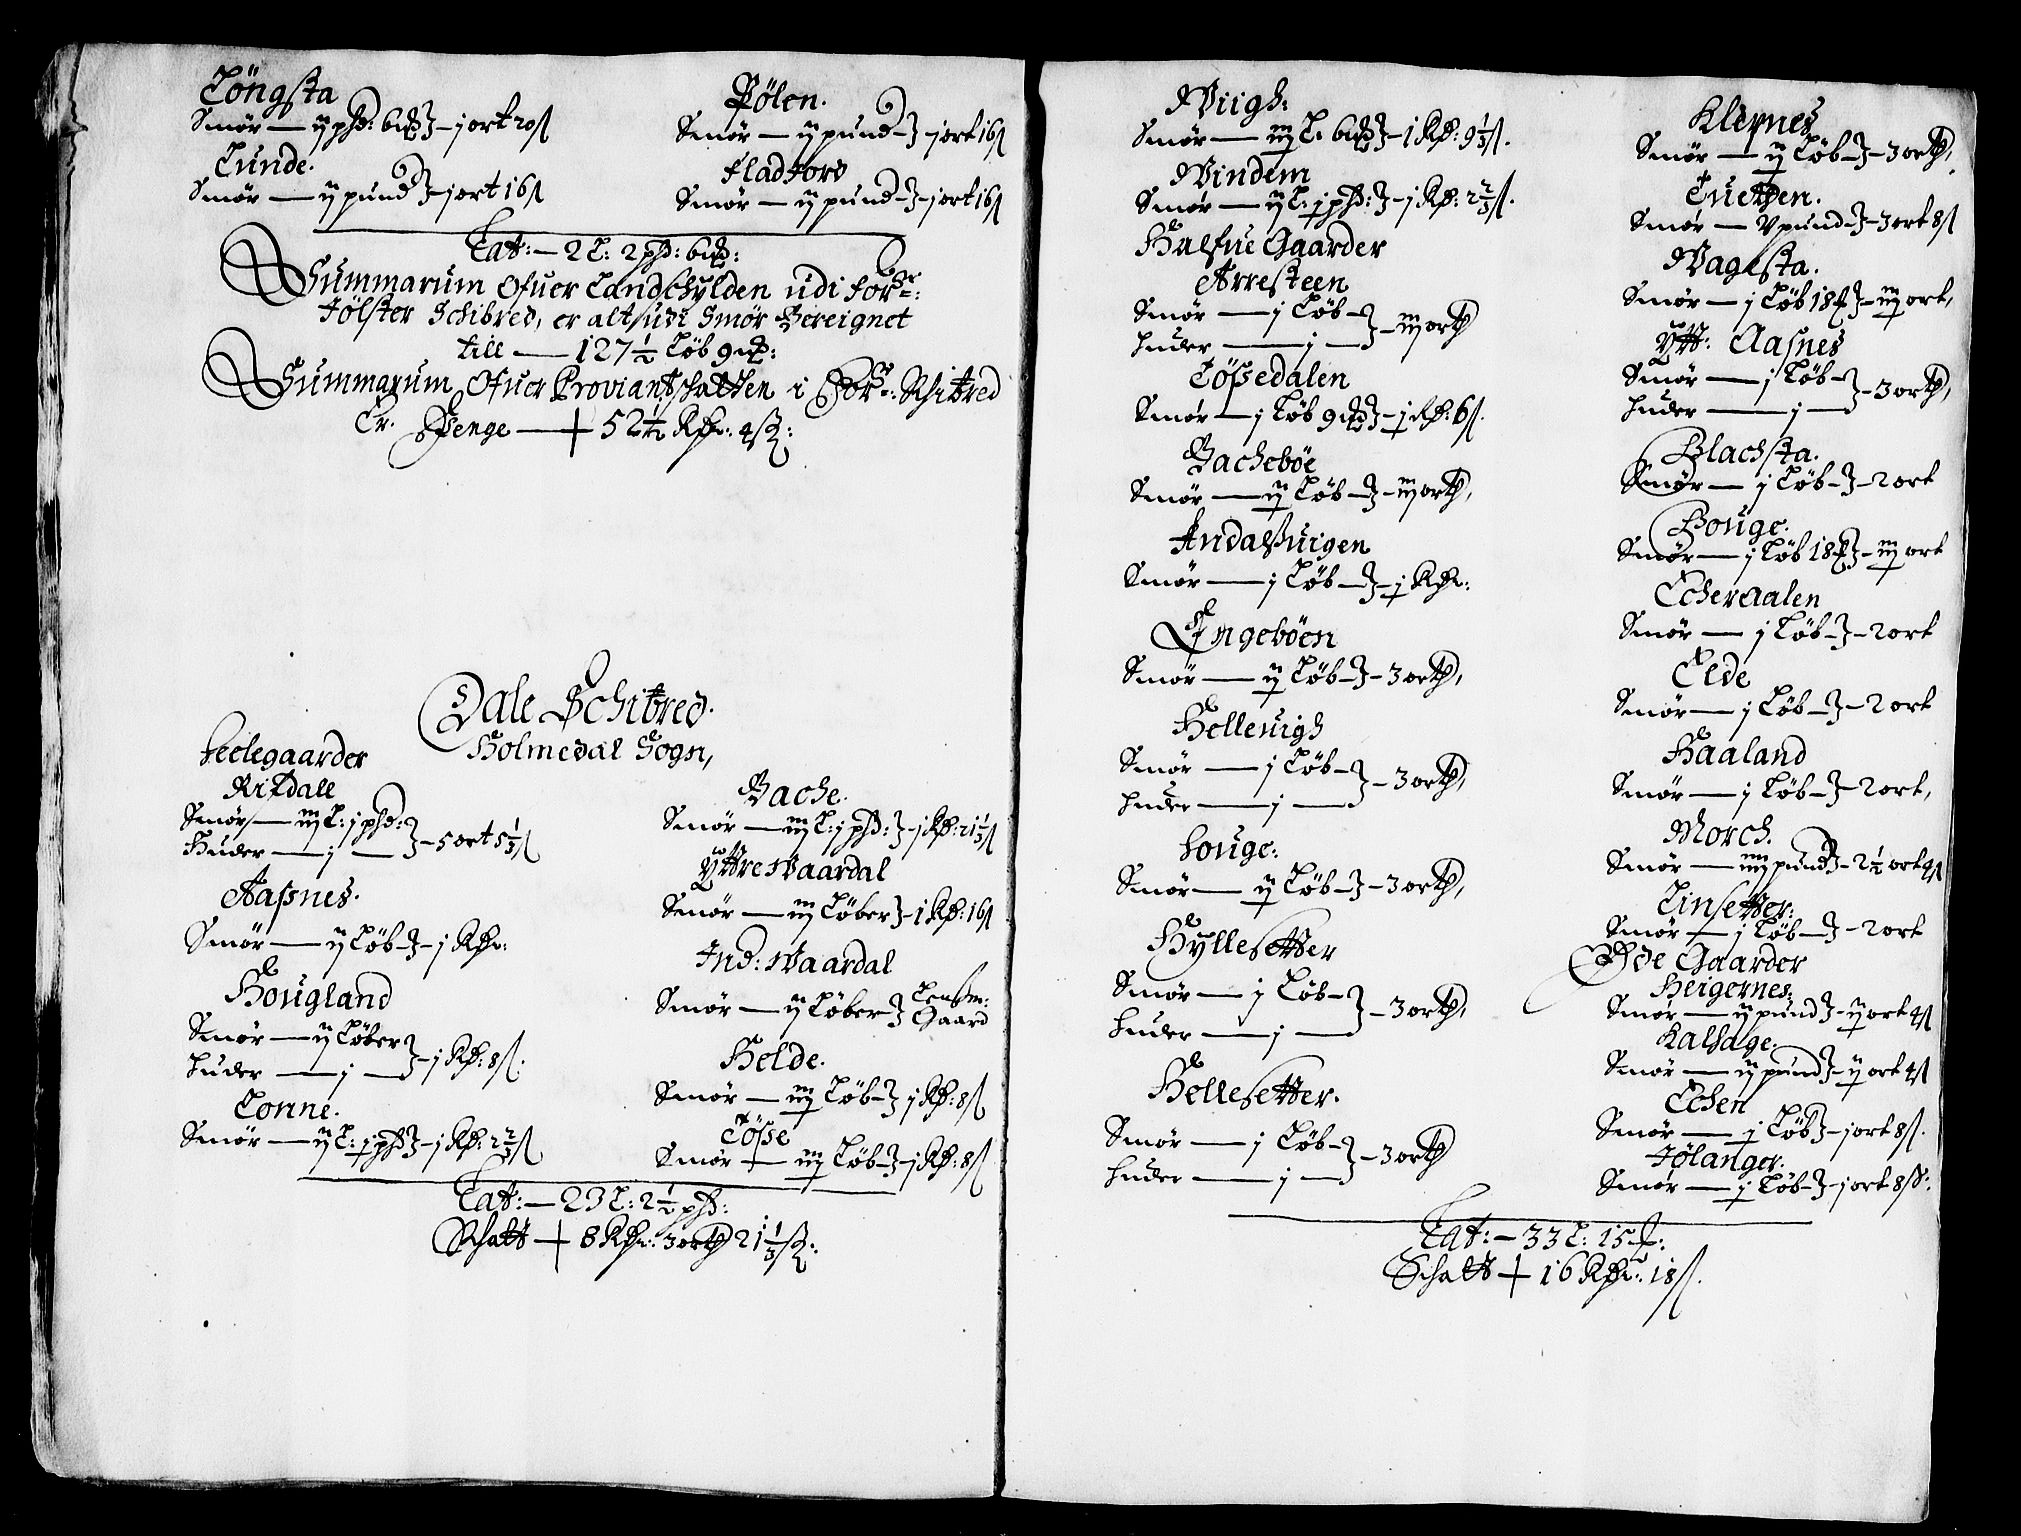 Löngsta
Smör — ij pd: 6 — j ort 20 s
Lunde.
Smör — ij pund — j ort 16 s
Pölen.
Smör — ij pund — j ort 16 s
Fladjord
Smör — ij pund — j ort 16 s
Lat: — 2 L: 2 pd: 6
Summarum Ofuer Landschylden udi for:
Jölster Schibred, er alt udi Smör Bereignet
till — 127 ½ Löb 9
Summarum Ofuer Proviantschatten i For: Schibred
Er. Penge — 52 ½ Rd: 4 s:
Dale Schibred.
Holmedal Sogn,
Feelegaarder
Ritdall
Smör — iij L: j pd:
Huder — j — 5 ort 5 ⅓ s
Aasnes.
Smör — ij Löb — j Rd:
Hougland
Smör — ij Löber
Huder — j — j Rd: 8 s.
Lonne.
Smör — ij L: j pd — j Rd: 2 ⅔ s
Bache.
Smör — iij L: j pd: — j Rd: 21 ⅓ s
Yttre Waardal
Smör — iij Löber — 1 Rd: 16 s
Ind: Waardal
Smör — ij Löber Lensm: Gaard
Helde.
Smör — iij Löb — j Rd: 8 s
Tösse
Smör — iij Löb — j Rd: 8 s
Lat: — 23 L: 2 ½ pd:
Schatt — 8 Rd: 3 orth 21 ⅓ s:
Wiigh:
Smör — iij L: 6 — 1 Rd: 9 ⅓ s.
Windem
Smör — ij L: j pd: — j Rd: 2 ⅔ s.
Halfue Gaarder
Arresteen
Smör — j Löb
Huder — j — iij orth
Tössedalen
Smör — j Löb 9 — j Rd: 6 s.
Bacheböe
Smör — ij Löb — iij orth,
Indalsuigen
Smör — j Löb — j Rd:
Engeböen
Smör — ij Löb — 3 orth,
Helleuigh
Smör — j Löb
Huder — j — 3 orth,
Houge:
Smör — ij Löb — 3 orth,
Hyllesetter
Smör — j Löb
Huder — j — 3 orth,
Hellesetter.
Smör — j Löb
Huder — j — 3 orth
Klepnes
Smör — ij Löb — 3 orth,
Tuetten.
Smör — V pund — 3 ort 8 s
Wagesta.
Smör — j Löb 18 — iij ort,
Ytt: Aasnes
Smör — j Löb
Huder — j — 3 orth,
Blachsta.
Smör — j Löb — 2 ort
Houge.
Smör — j Löb 18 — iij ort
Echeraalen
Smör — j Löb — 2 ort
Elde
Smör — j Löb — 2 ort
Haaland
Smör — j Löb — 2 ort,
Morch.
Smör — iiij pund — 2 ½ ort 4 s
Linsetter:
Smör — j Löb — 2 ort
Öde Gaarder
Heigernes:
Smör — ij pund — ij ort 4 s
Kalsage.
Smör — ij pund — ij ort 4 s
Echen
Smör — j Löb — j ort 8 s.
Jölanger.
Smör — j Löb — j ort 8 s:
Lat: — 33 L: 15
Schatt — 16 Rd: 18 s.